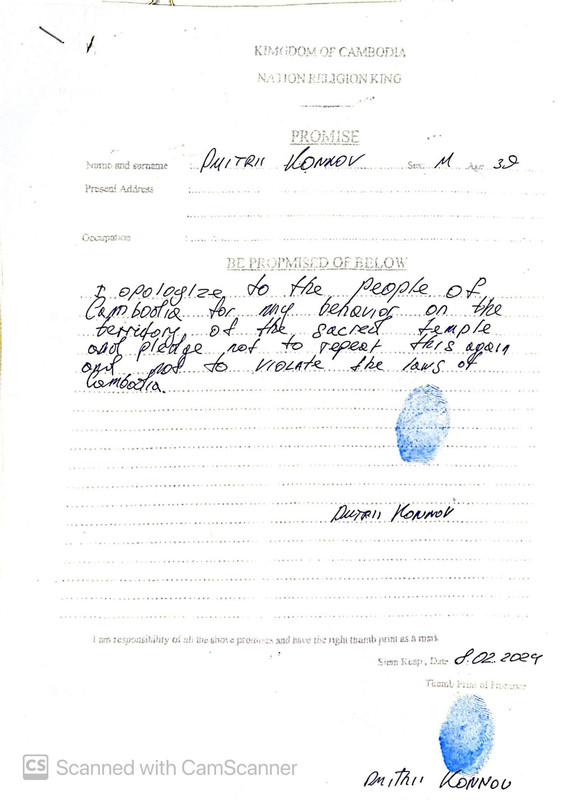 KIMGDOM OF CAMBODIA
NATION RELIGION KING
PROMISE
Name and surname : DMITRII KONNOV Sex M Age 39
Present Address :
Occupation :
BE PROPMISED OF BELOW
I apologize to the people of
Cambodia for my behavior on the
territory of the sacred temple
and pledge not to repeat this again
and not to violate the laws of
Cambodia.
DMITRII KONNOV
I am responsibility of all the above promises and have the right thumb print as a mark
Siem Reap, Date 8.02.2024
Thumb Print of Promiser
DMITRII KONNOV
CS Scanned with CamScanner